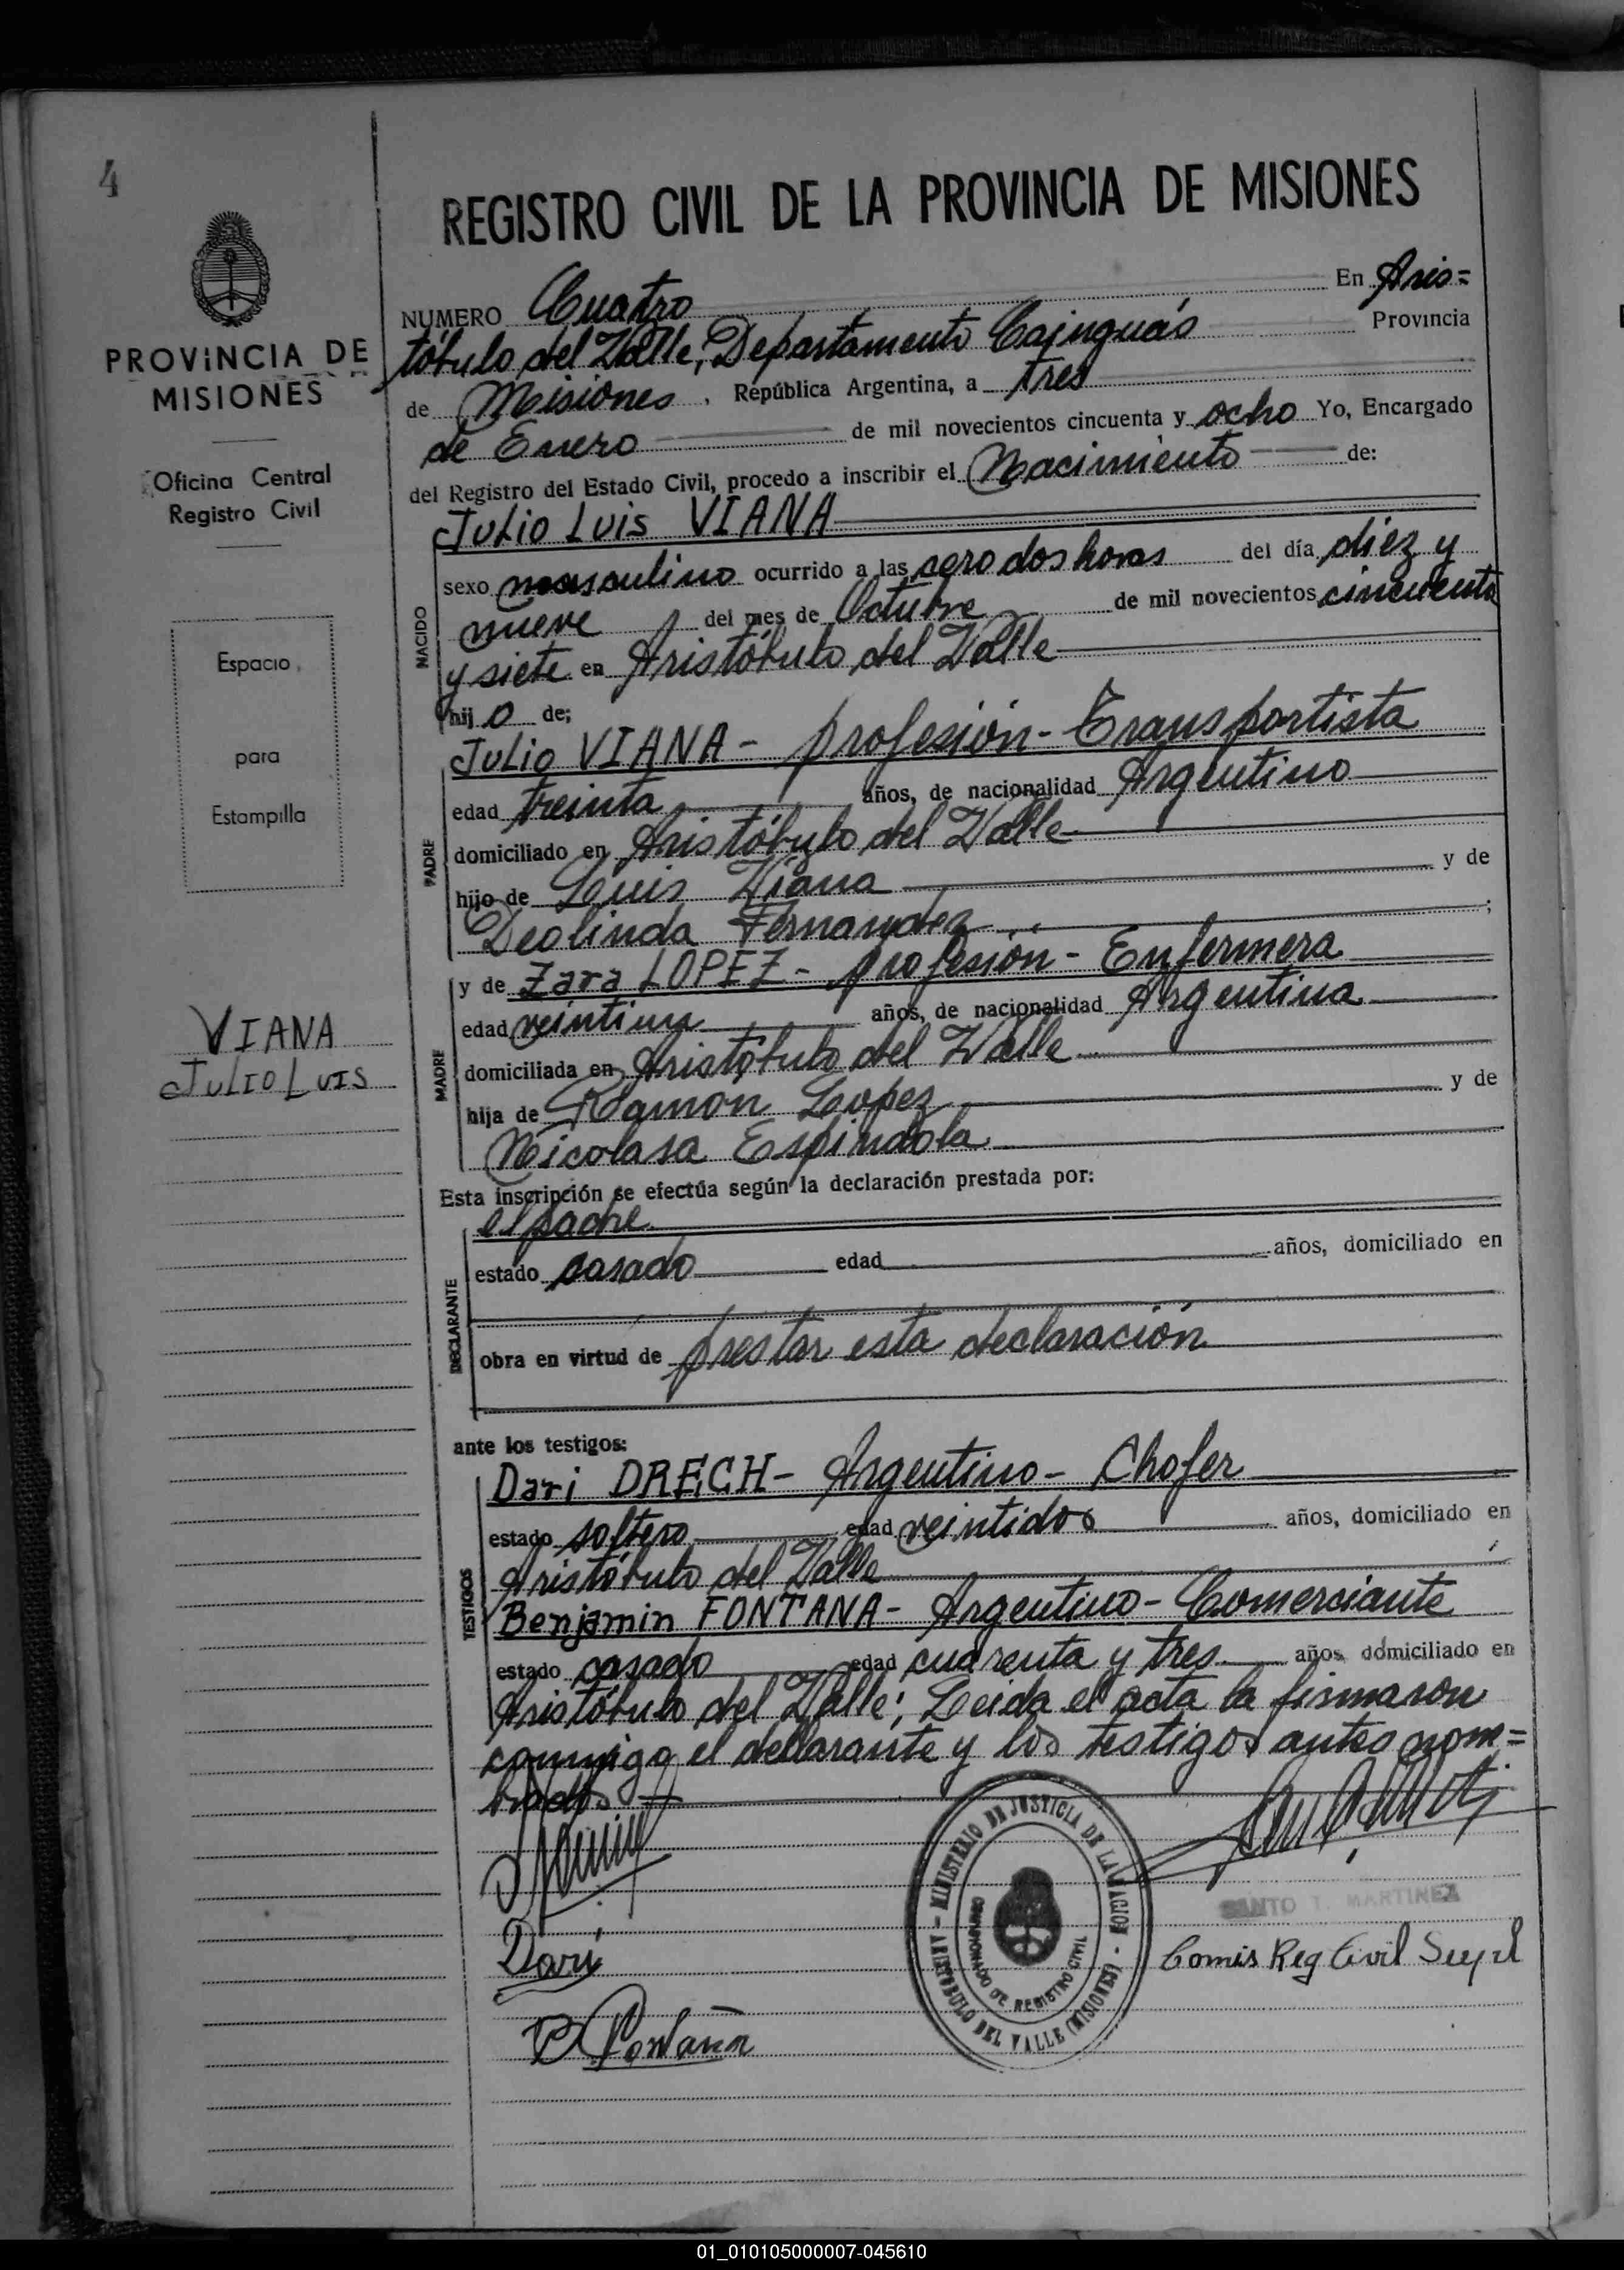 4
PROVINCIA DE
MISIONES
Oficina Central
Registro Civil
Espacio
para
Estampilla
VIANA
JULIO LUIS
REGISTRO CIVIL DE LA PROVINCIA DE MISIONES
NUMERO Cuatro En Aris=
tóbulo del Valle, Departamento Cainguás Provincia
de Misiones, República Argentina, a tres
de Enero de mil novecientos cincuenta y ocho Yo, Encargado
del Registro del Estado Civil, procedo a inscribir el Nacimiento de:
Julio Luis VIANA
NACIDO
sexo masculino ocurrido a las cero dos horas del día diez y
nueve del mes de Octubre de mil novecientos cincuenta
y siete en Aristóbulo del Valle
hij o de;
PADRE
Julio VIANA - profesión - Transportista
edad treinta años, de nacionalidad Argentino
domiciliado en Aristóbulo del Valle
hijo de Luis Viana y de
Deolinda Fernandez ;
MADRE
y de Zara LOPEZ - profesión - Enfermera
edad veintiun años, de nacionalidad Argentina
domiciliada en Aristóbulo del Valle
hija de Ramon Lopez y de
Nicolasa Espindola
Esta inscripción se efectúa según la declaración prestada por:
DECLARANTE
el padre
estado casado edad años, domiciliado en
obra en virtud de prestar esta declaración
ante los testigos:
TESTIGOS
Dari DRECH - Argentino - Chofer
estado soltero edad veintidos años, domiciliado en
Aristóbulo del Valle
Benjamin FONTANA - Argentino - Comerciante
estado casado edad cuarenta y tres años, domiciliado en
Aristóbulo del Valle; Leida el acta la firmaron
conmigo el declarante y los testigos antes nom=
brados
Dari
B Fontana
MINISTERIO DE JUSTICIA DE LA NACION - ARISTOBULO DEL VALLE (MISIONES) -
REGISTRO CIVIL
SANTO T. MARTINEZ
Comis Reg Civil
01_010105000007-045610